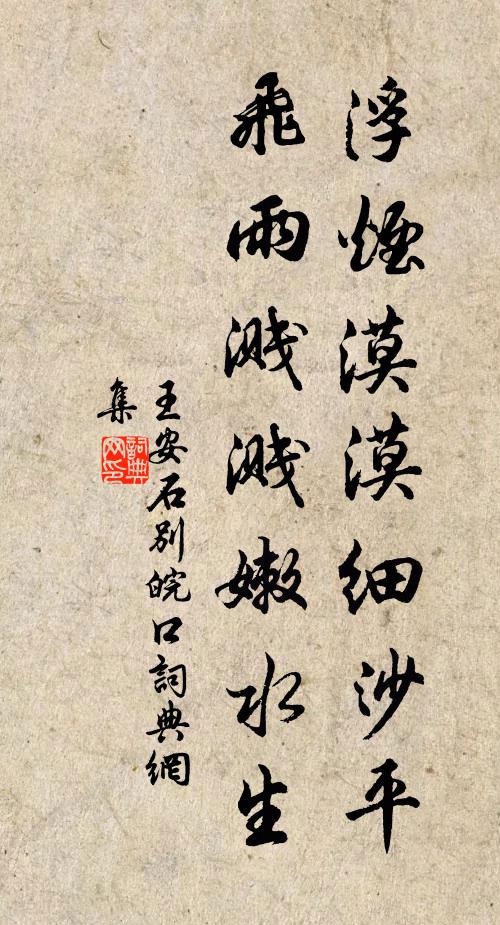 浮煙漠漠細沙平
飛雨濺濺嫩水生
王安石別皖口詞典網
集
詞典
网印